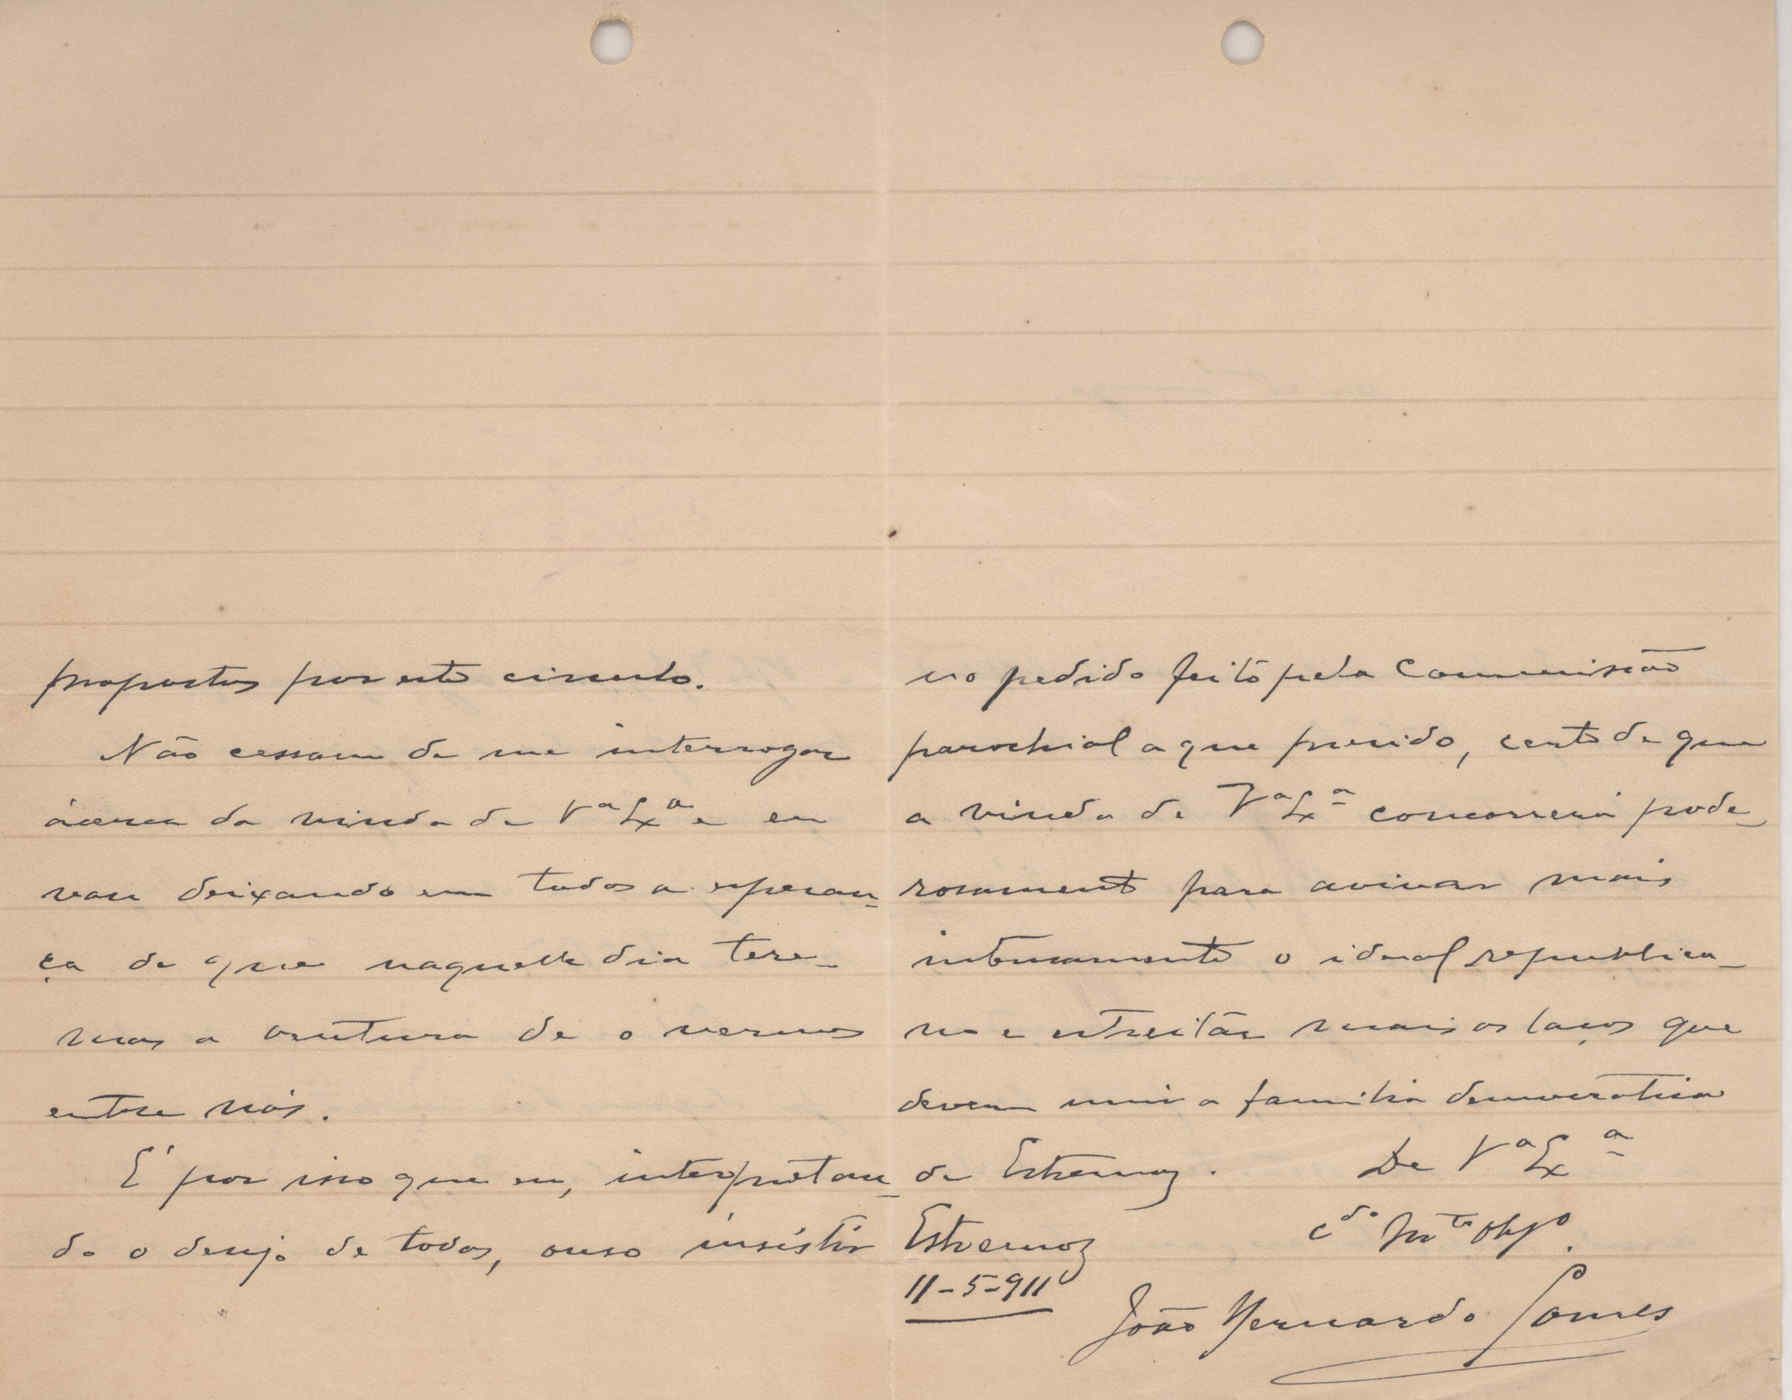 propostos por este circulo.
Não cessam de me interrogar
ácerca da vinda de Vª Exª e eu
vou deixando em todos a esperan-
ça de que naquelle dia tere-
mos a ventura de o vermos
entre nós.
E' por isso que eu, interpretan-
do o desejo de todos, ouso insistir
no pedido feito pela Commissão
parochial a que presido, certo de que
a vinda de Vª Exª concorrerá pode-
rosamente para avivar mais
intensamente o ideal republica-
no e estreitar mais os laços que
devem unir a familia democratica
de Estremoz.
De Vª Exª
cdo mto obgo.
Estremoz
11-5-911
João Bernardo Gomes